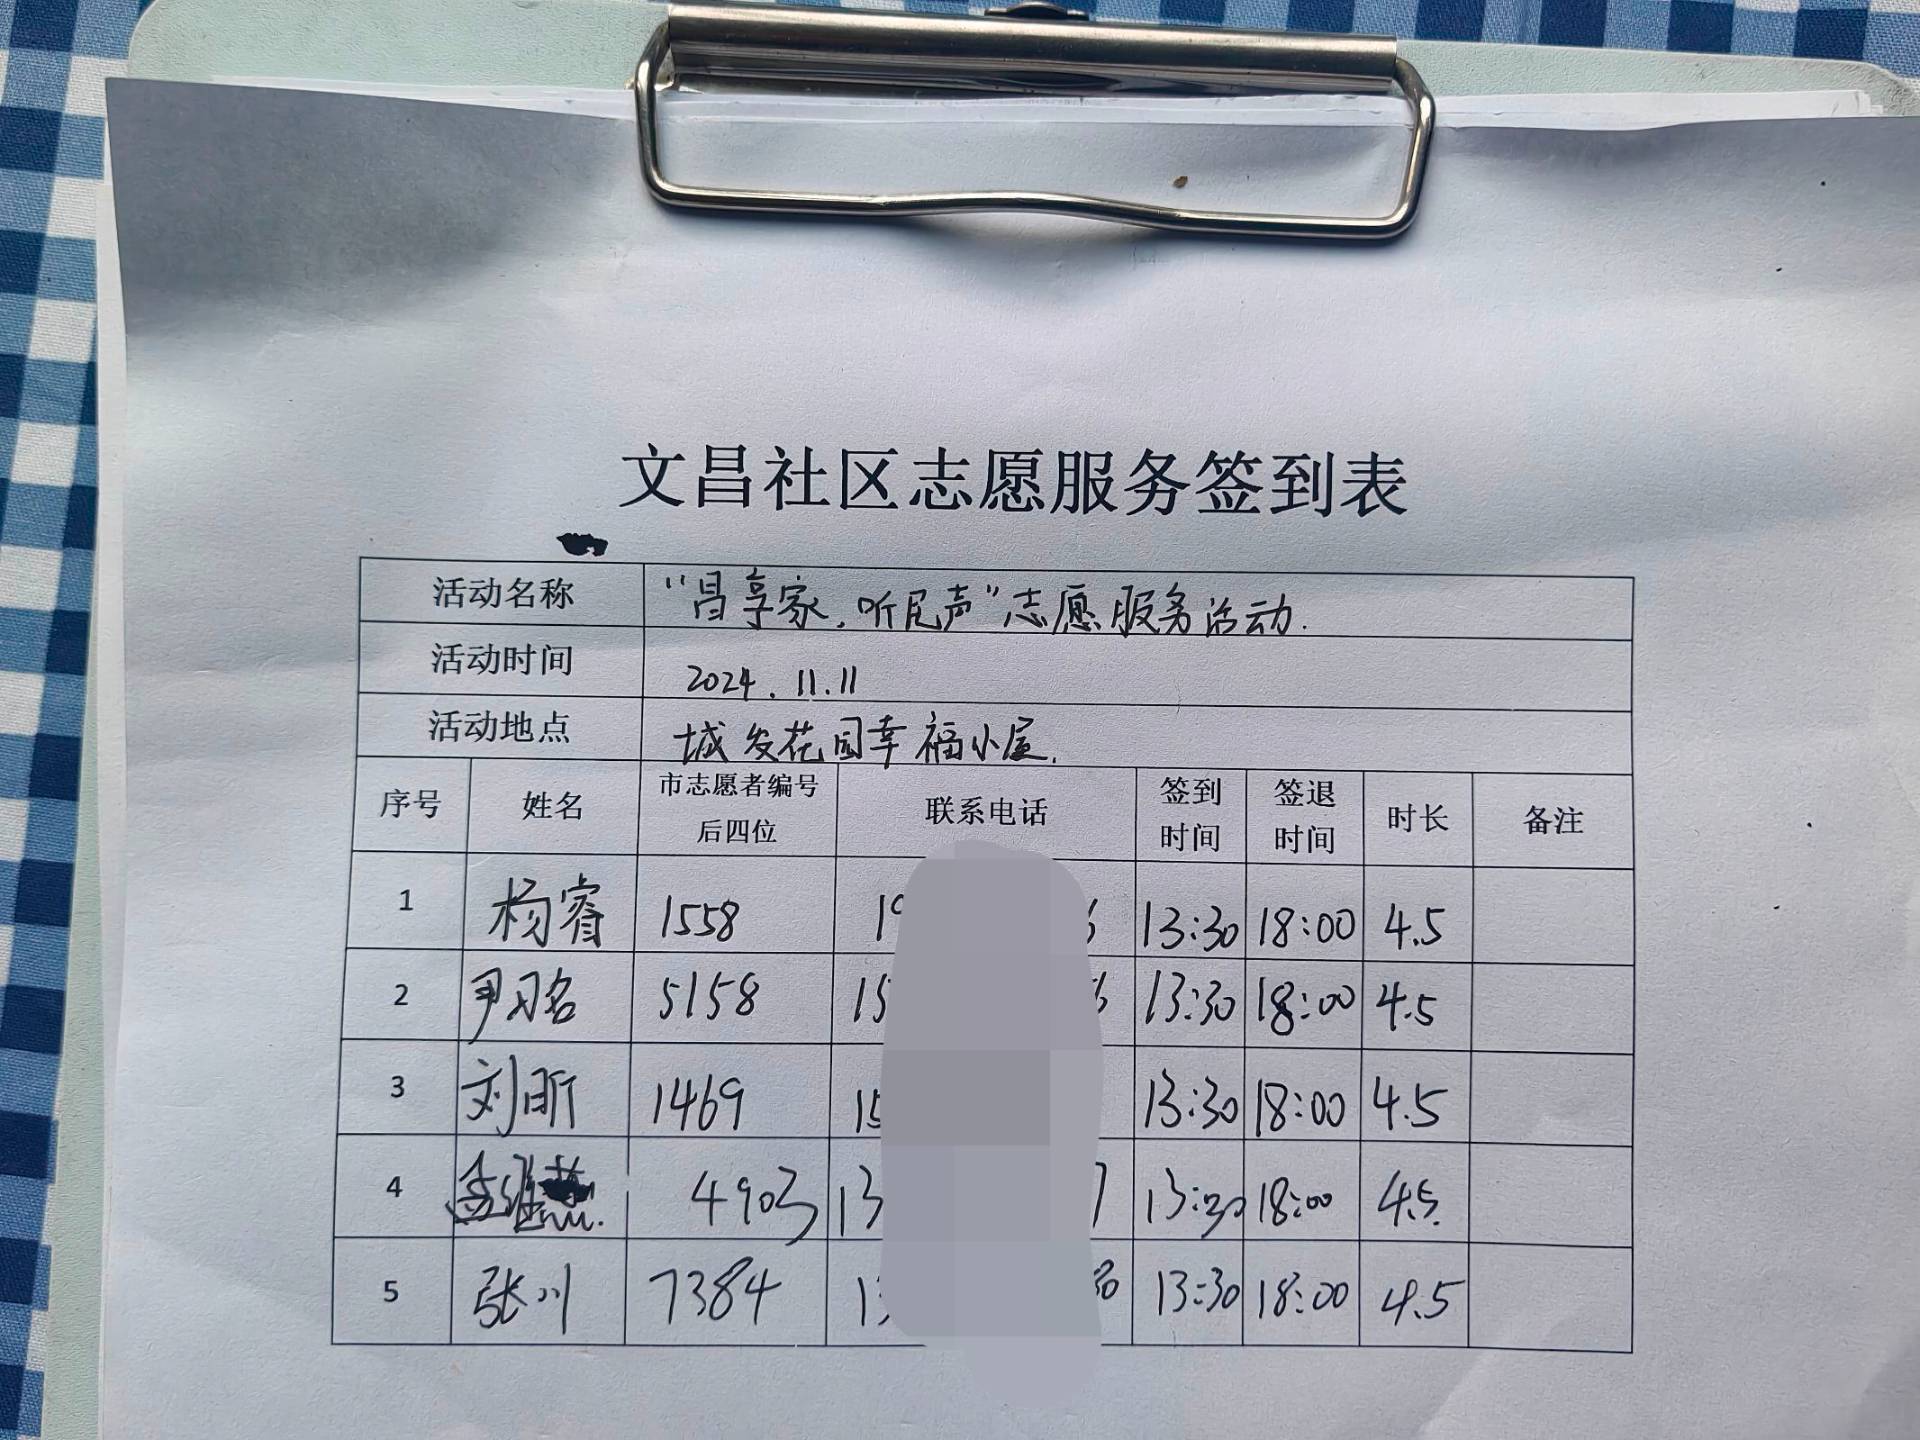 文昌社区志愿服务签到表
活动名称 “昌享家,听民声”志愿服务活动.
活动时间 2024.11.11
活动地点 城发花园幸福小屋.
序号 姓名 市志愿者编号后四位 联系电话 签到时间 签退时间 时长 备注
1 杨睿 1558 13:30 18:00 4.5
2 尹习名 5158 15 13:30 18:00 4.5
3 刘昕 1469 15 13:30 18:00 4.5
4 4903 13 7 13:30 18:00 4.5.
5 张川 7384 13 30 13:30 18:00 4.5